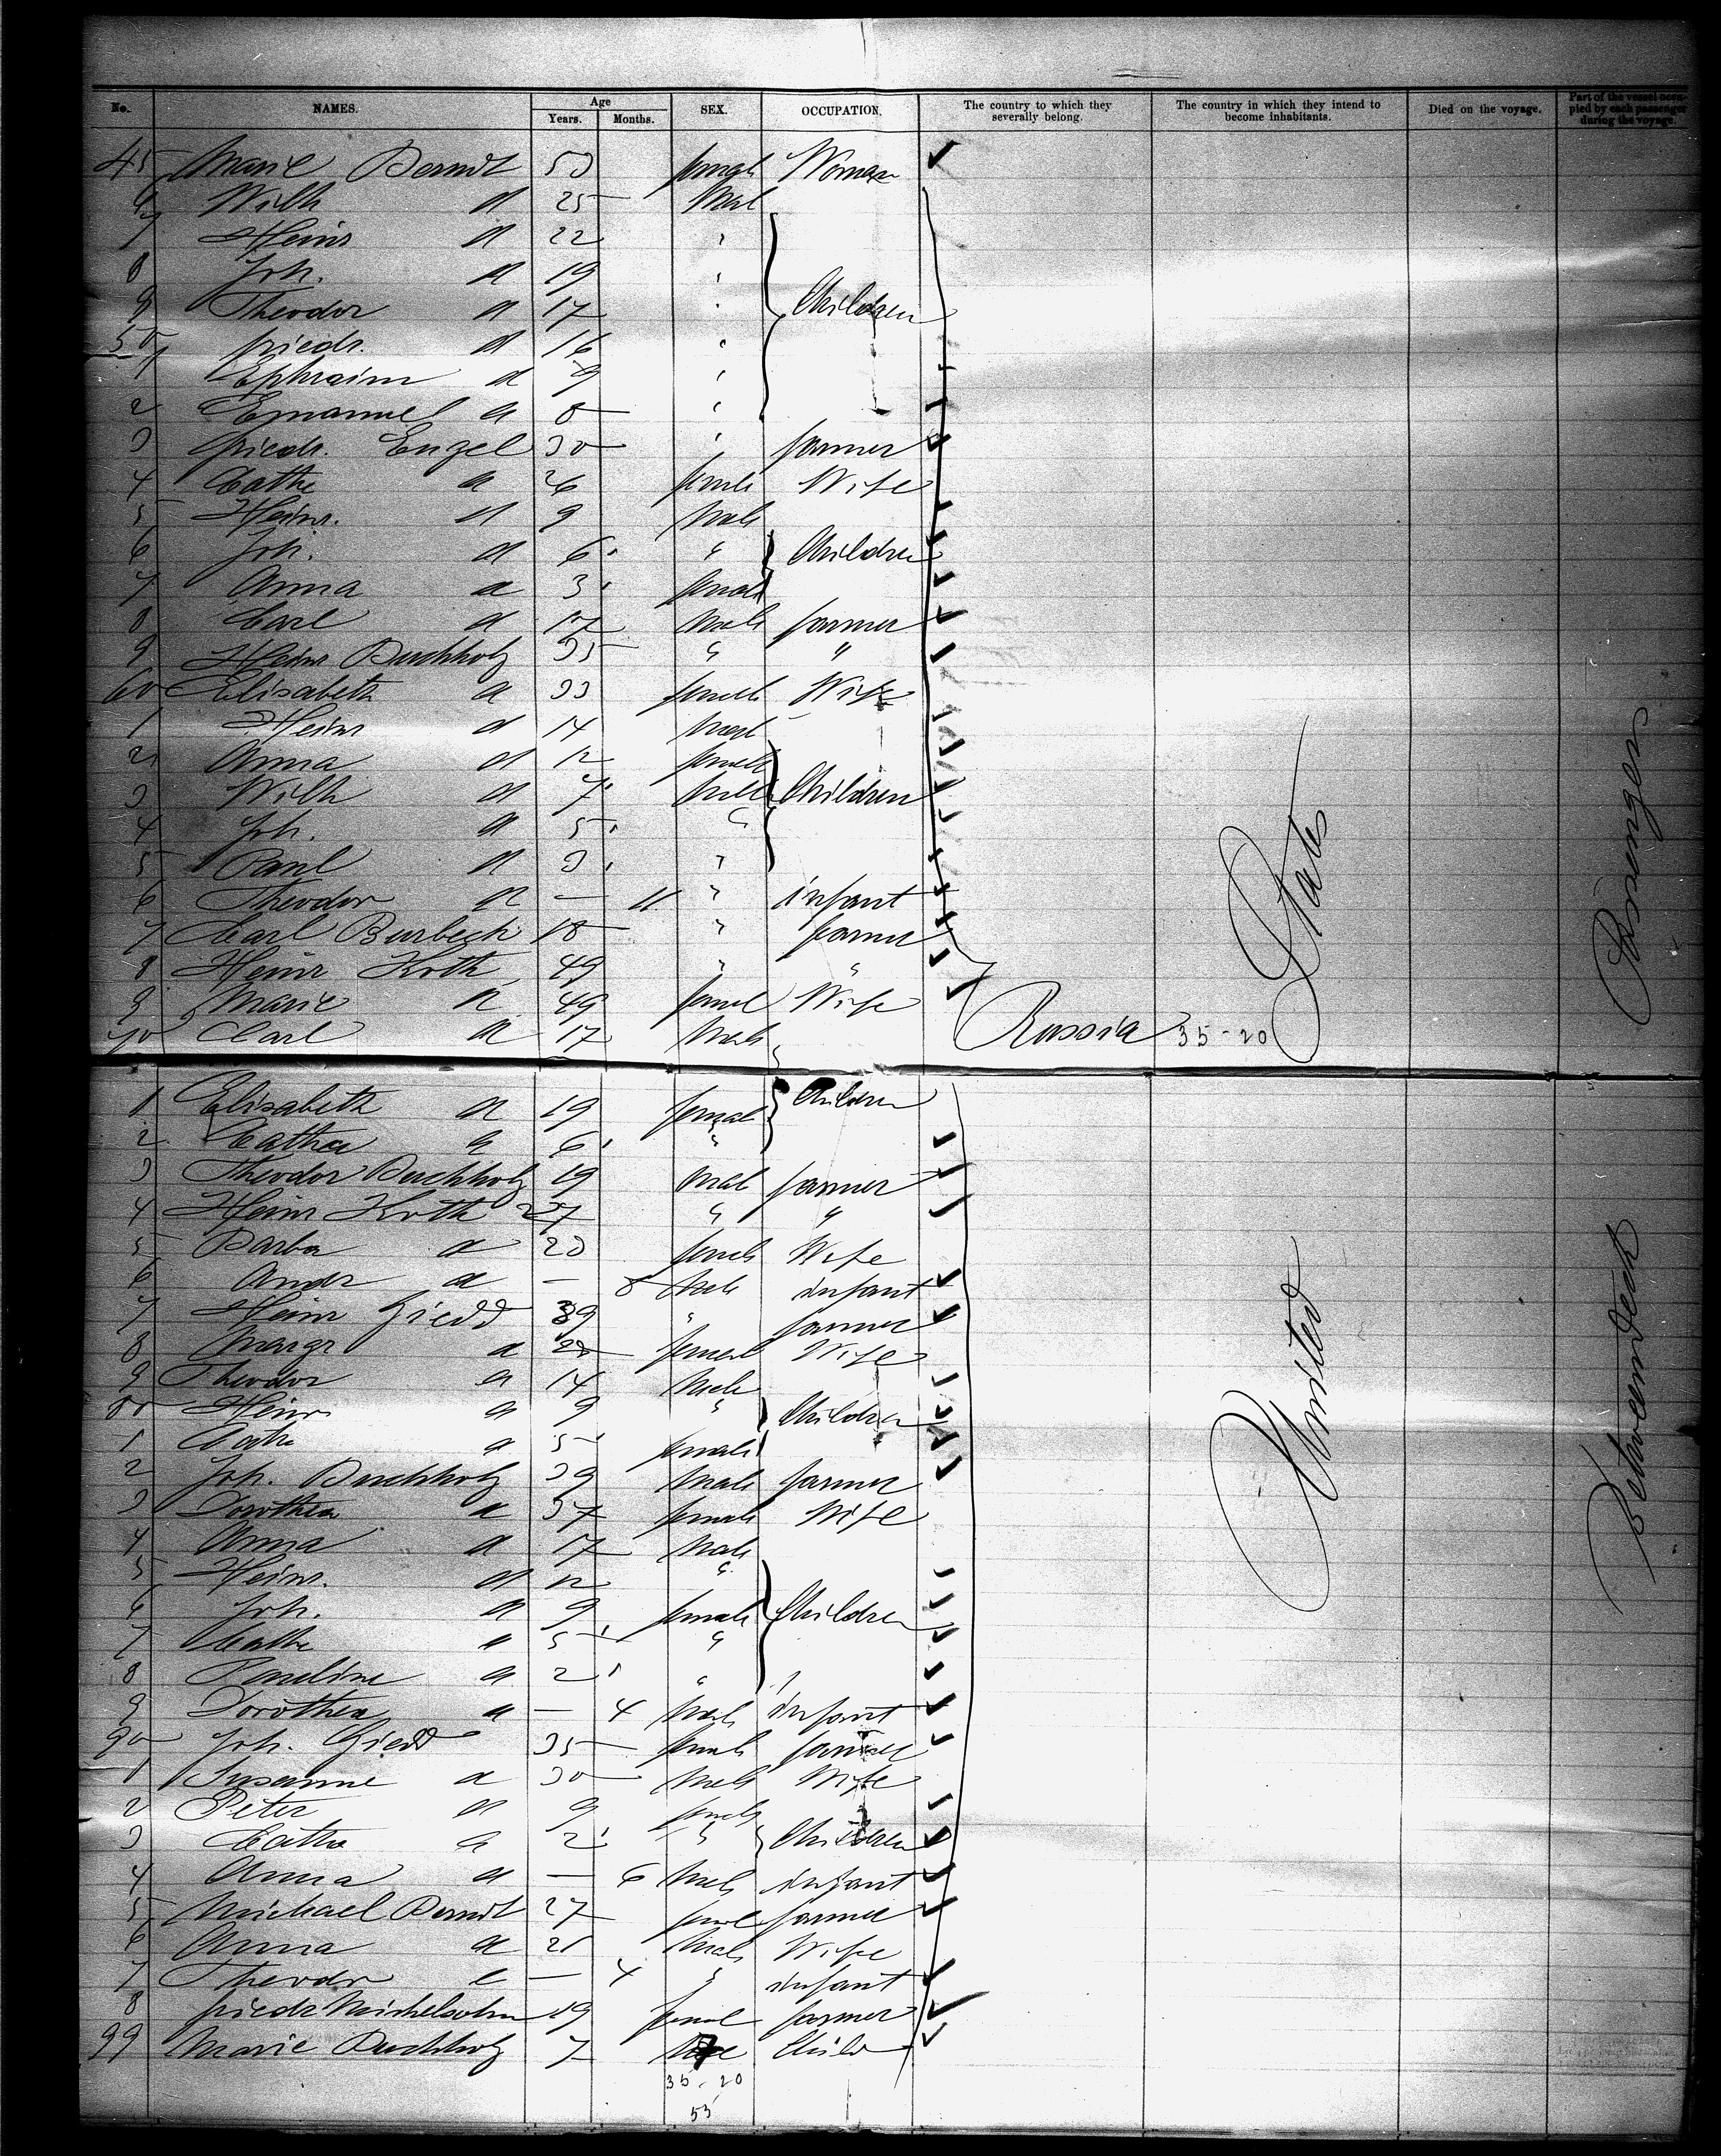 No. NAMES. Age Years. Months. SEX. OCCUPATION. The country to which they severally belong. The country in which they intend to become inhabitants. Died on the voyage. Part of the vessel occupied by each passenger during the voyage.
45 Marie Berndt 53 female Woman
6 Wilh a 25 Mal
7 Heinr a 22 "
8 Joh. a 19 "
9 Theodor a 17 " Children
50 friedr. a 16 "
1 Ephraim a 9 "
2 Emanuel a 8 "
3 friedr. Engel 30 " farmer
4 Cathe a 26 female Wife
5 Heinr. a 9 Male
6 Joh. a 6 " Children
7 Anna a 3 female
8 Carl a 17 Male farmer
9 Heinr Buchholz 35 " "
60 Elisabeth a 33 female Wife
1 Heinr a 14 Male
2 Anna a 12 female
3 Wilh a 7 Male Children
4 Joh. a 5 "
5 Paul a 3 "
6 Theodor a — 11 " infant
7 Carl Burbech 18 " farmer
8 Heinr Koth 49 " "
9 Marie a 49 femal Wife
70 Carl a 17 Male
Russia 35-20
1 Elisabeth a 19 female Children
2 Catha a 6 "
3 Theodor Buchholz 19 Male farmer
4 Heinr Koth 27 " "
5 Barba a 20 female Wife
6 Andr a — 8 Male infant
7 Heinr Giedd 39 " farmer
8 Margr a female Wife
9 Theodor a 14 Male
80 Heinr a 9 " Children
1 Cathe a 5 female
2 Joh. Buchholz 39 Male farmer
3 Dorothea a 37 female Wife
4 Anna a 17 Male
5 Heinr. a 12 "
6 Joh. a 9 female Children
7 Cathe a 5 "
8 Pauline a 2 "
9 Dorothea a — 4 Male infant
90 Joh. Giedd 35 female farmer
1 Susanne a 30 Male Wife
2 Peter a 9 female
3 Catha a 2 " Children
4 Anna a — 6 Male infant
5 Michael Berndt 27 femal farmer
6 Anna a 21 Male Wife
7 Theodr a — 4 " infant
8 friedr Michelsohn 19 femal farmer
99 Marie Buchholz 7 Child
35-20
55
United States
Betweendeck Passengers